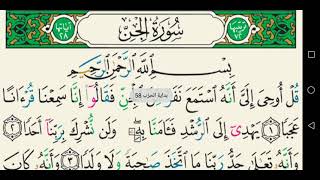 ترتيبها ٧٢
سُورَةُ الجِنِّ
آياتها ٢٨
بِسْمِ ٱللَّهِ ٱلرَّحْمَٰنِ ٱلرَّحِيمِ
قُلْ أُوحِىَ إِلَىَّ أَنَّهُ ٱسْتَمَعَ نَفَرٌ مِّنَ ٱلْجِنِّ فَقَالُوٓا۟ إِنَّا سَمِعْنَا قُرْءَانًا
بداية الحزب 58
عَجَبًا ١ يَهْدِىٓ إِلَى ٱلرُّشْدِ فَـَٔامَنَّا بِهِۦ وَلَن نُّشْرِكَ بِرَبِّنَآ أَحَدًا ٢
وَأَنَّهُۥ تَعَٰلَىٰ جَدُّ رَبِّنَا مَا ٱتَّخَذَ صَٰحِبَةً وَلَا وَلَدًا ٣ وَأَنَّهُۥ كَانَ